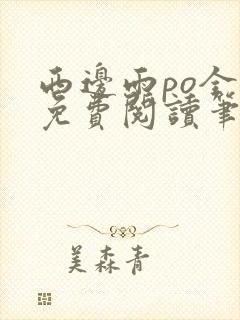 西邊雨po全
免費閱讀筆
美森青